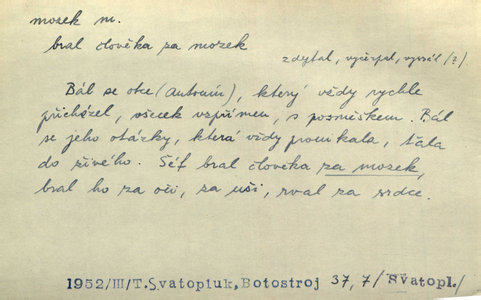 mozek m.
bral člověka za mozek
zdeptal, vyčerpal, vyssál (?).
Bál se otce (Antonín), který vždy rychle
přicházel, všecek vzpřímen, s posměškem. Bál
se jeho otázky, která vždy pronikala, ťala
do živého. Šéf bral člověka za mozek,
bral ho za oči, za uši, rval za srdce.
1952/III/T.Svatopluk, Botostroj 37, 7/ Svatopl./